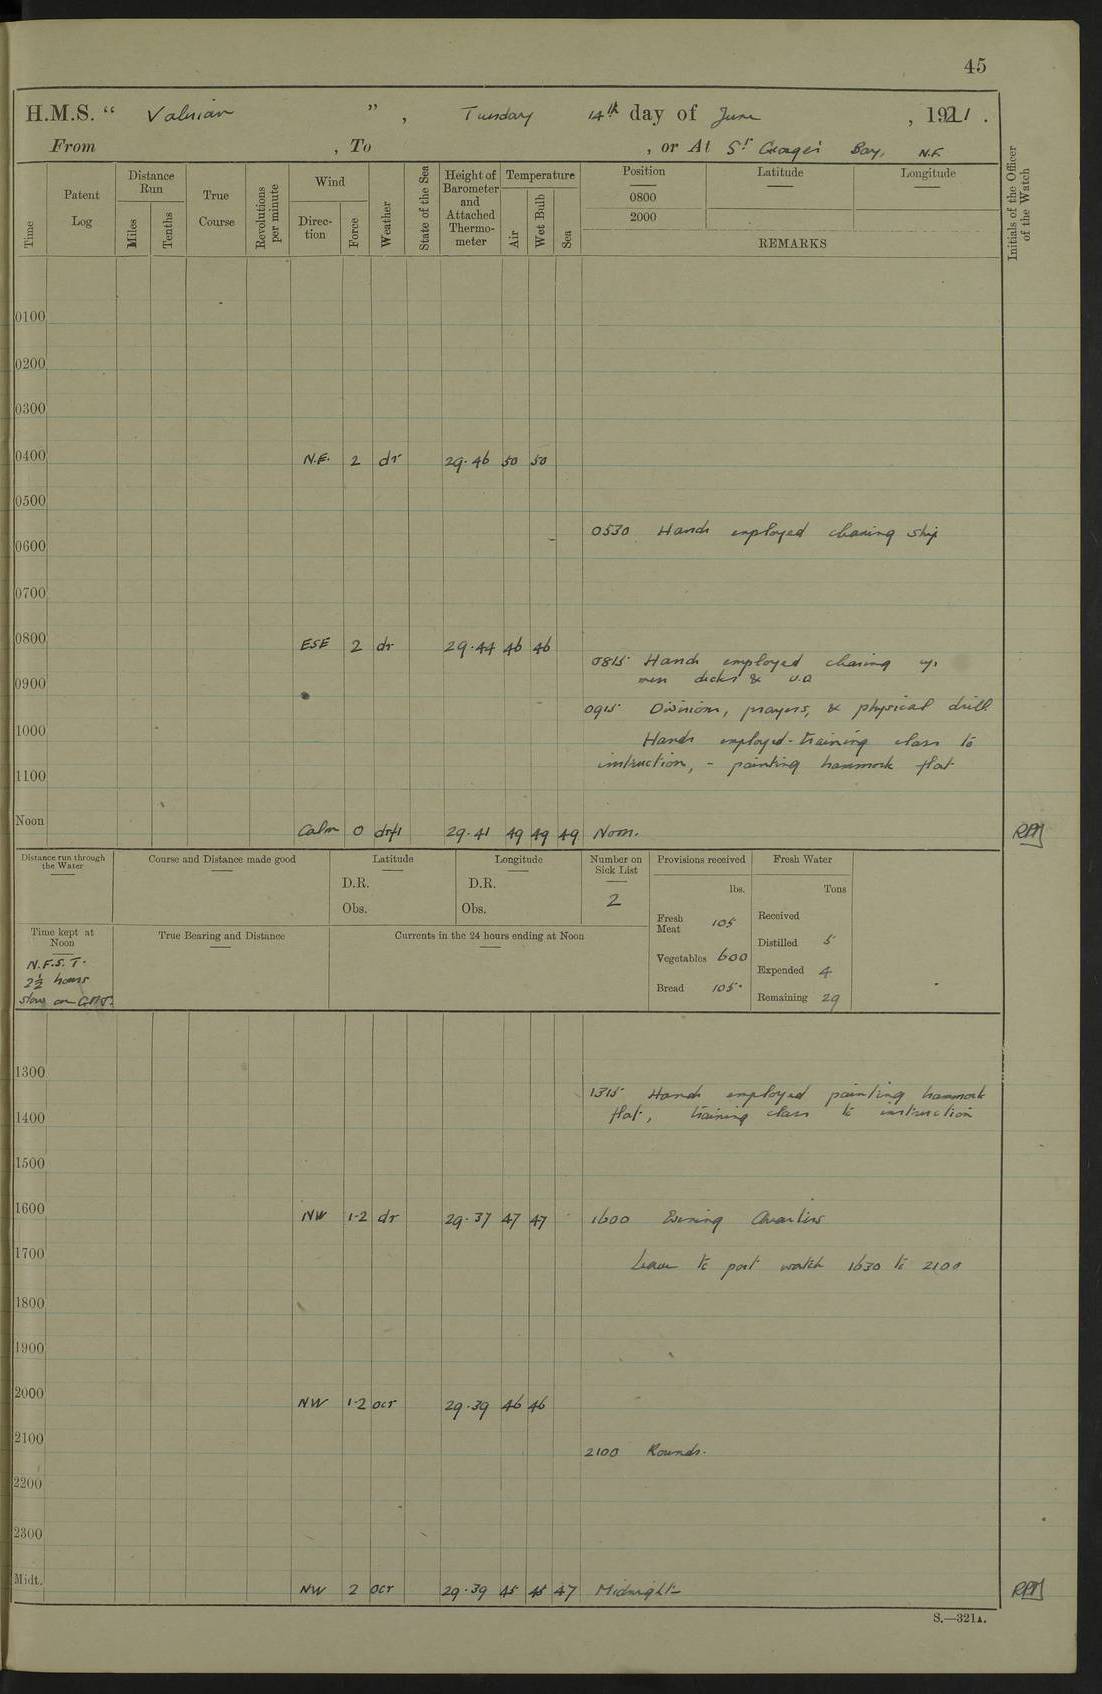 45
H.M.S. “ Valerian ” , Tuesday 14th day of June , 1921 .
From , To , or At St Georges Bay, N.F.
Time
Patent Log
Distance Run
Miles
Tenths
True Course
Revolutions per minute
Wind
Direction
Force
Weather
State of the Sea
Height of Barometer and Attached Thermometer
Temperature
Air
Wet Bulb
Sea
Position
0800
2000
Latitude
Longitude
REMARKS
Initials of the Officer of the Watch
0100
0200
0300
0400 N.E. 2 dr 29.46 50 50
0500
0530 Hands employed cleaning ship
0600
0700
0800 ESE 2 dr 29.44 46 46
0815 Hands employed cleaning up
mess decks &
0900
0915 Divisions, prayers, & physical drill
1000
Hands employed - training class to
instruction, - painting hammock flat
1100
Noon Calm 0 29.41 49 49 49 Noon. RPM
Distance run through the Water
Course and Distance made good
Latitude
D.R.
Obs.
Longitude
D.R.
Obs.
Number on Sick List
2
Provisions received
lbs.
Fresh Meat 105
Vegetables 600
Bread 105
Fresh Water
Tons
Received
Distilled 5
Expended 4
Remaining 29
Time kept at Noon
N.F.S.T.
2½ hours
slow on G.M.T.
True Bearing and Distance
Currents in the 24 hours ending at Noon
1300
1315 Hands employed painting hammock
flat, training class to instruction
1400
1500
1600 NW 1-2 dr 29.37 47 47 1600 Evening Quarters
1700
Leave to port watch 1630 to 2100
1800
1900
2000 NW 1-2 ocr 29.39 46 46
2100
2100 Rounds.
2200
2300
Midt. NW 2 ocr 29.39 45 45 47 Midnight RPM
S.—321A.